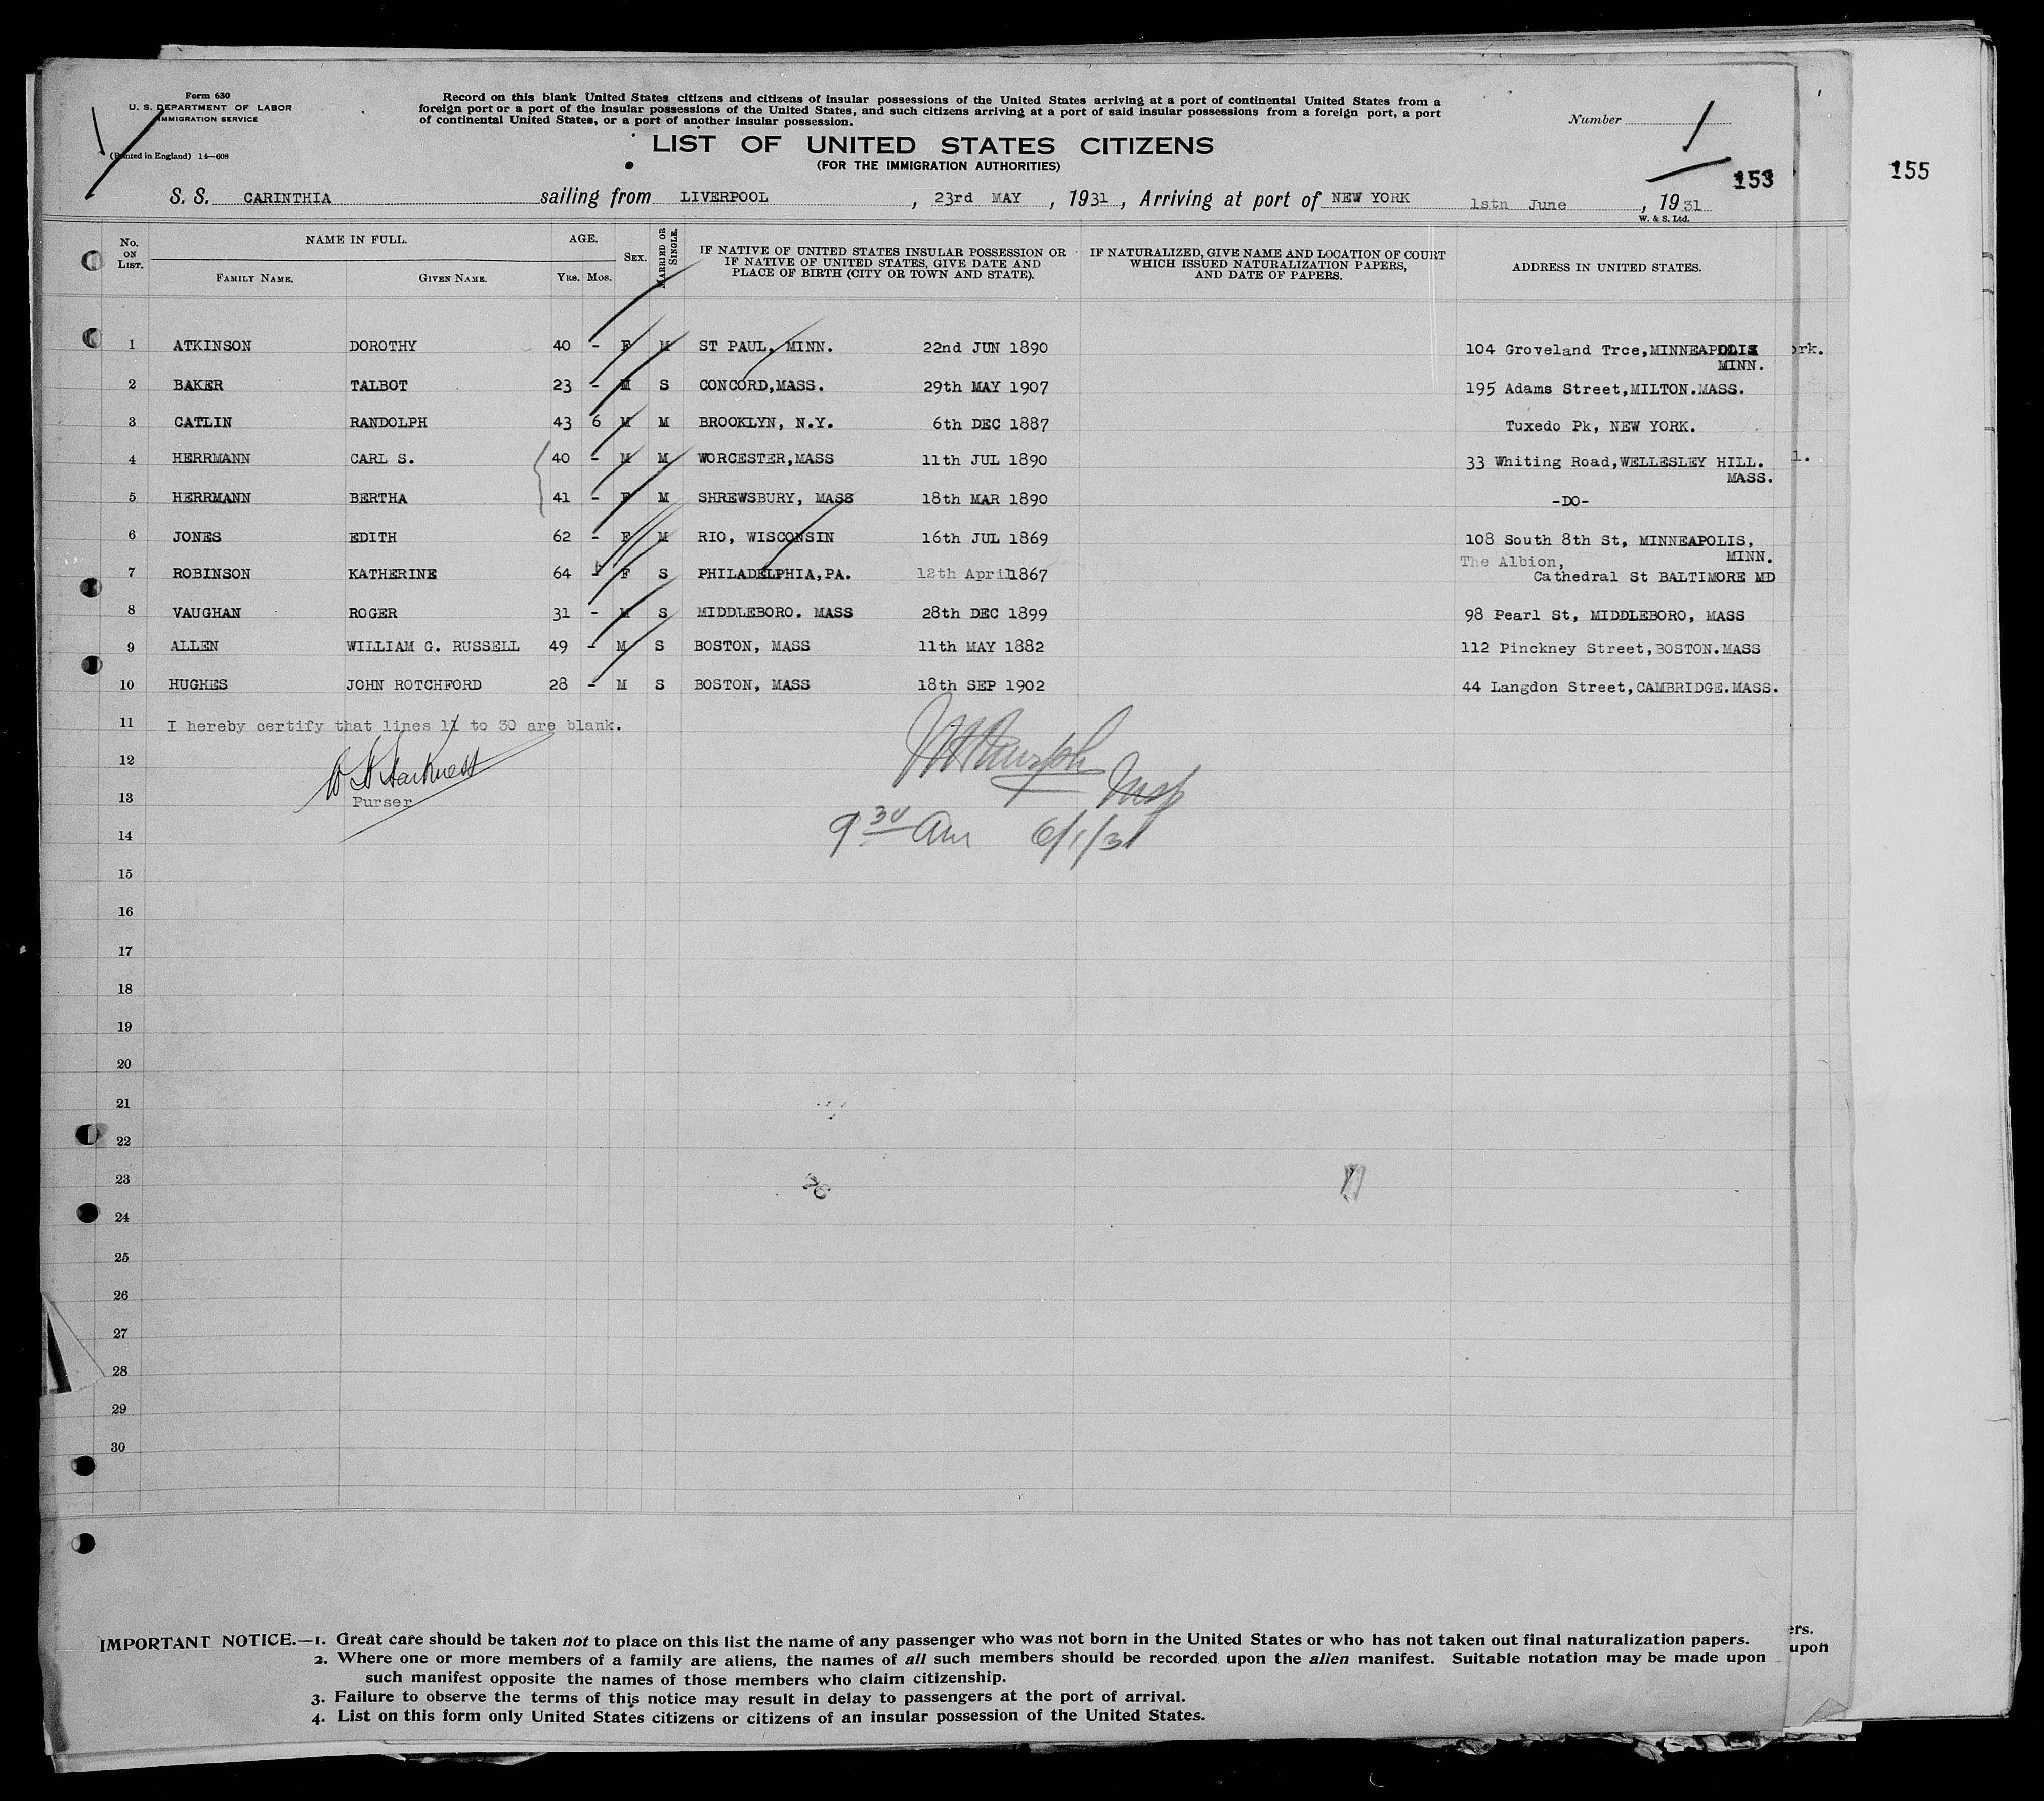 Form 630
U. S. DEPARTMENT OF LABOR
IMMIGRATION SERVICE
(Printed in England) 14—608
Record on this blank United States citizens and citizens of insular possessions of the United States arriving at a port of continental United States from a
foreign port or a port of the insular possessions of the United States, and such citizens arriving at a port of said insular possessions from a foreign port, a port
of continental United States, or a port of another insular possession.
Number
LIST OF UNITED STATES CITIZENS
(FOR THE IMMIGRATION AUTHORITIES)
153
155
S. S. CARINTHIA sailing from LIVERPOOL, 23rd MAY, 1931, Arriving at port of NEW YORK 1stn June, 1931
W. & S. Ltd.
No. ON LIST. NAME IN FULL. AGE. SEX. MARRIED OR SINGLE. IF NATIVE OF UNITED STATES INSULAR POSSESSION OR IF NATIVE OF UNITED STATES, GIVE DATE AND PLACE OF BIRTH (CITY OR TOWN AND STATE). IF NATURALIZED, GIVE NAME AND LOCATION OF COURT WHICH ISSUED NATURALIZATION PAPERS, AND DATE OF PAPERS. ADDRESS IN UNITED STATES.
FAMILY NAME. GIVEN NAME. YRS. MOS.
1 ATKINSON DOROTHY 40 - F M ST PAUL, MINN. 22nd JUN 1890 104 Groveland Trce,MINNEAPOLIS
MINN.
ork.
2 BAKER TALBOT 23 - M S CONCORD,MASS. 29th MAY 1907 195 Adams Street,MILTON.MASS.
3 CATLIN RANDOLPH 43 6 M M BROOKLYN, N.Y. 6th DEC 1887 Tuxedo Pk, NEW YORK.
4 HERRMANN CARL S. 40 - M M WORCESTER,MASS 11th JUL 1890 33 Whiting Road,WELLESLEY HILL.
MASS.
l.
5 HERRMANN BERTHA 41 - F M SHREWSBURY, MASS 18th MAR 1890 -DO-
6 JONES EDITH 62 - F M RIO, WISCONSIN 16th JUL 1869 108 South 8th St, MINNEAPOLIS,
MINN.
The Albion,
7 ROBINSON KATHERINE 64 - F S PHILADELPHIA,PA. 12th April1867 Cathedral St BALTIMORE MD
8 VAUGHAN ROGER 31 - M S MIDDLEBORO. MASS 28th DEC 1899 98 Pearl St, MIDDLEBORO, MASS
9 ALLEN WILLIAM G. RUSSELL 49 - M S BOSTON, MASS 11th MAY 1882 112 Pinckney Street,BOSTON.MASS
10 HUGHES JOHN ROTCHFORD 28 - M S BOSTON, MASS 18th SEP 1902 44 Langdon Street,CAMBRIDGE.MASS.
11 I hereby certify that lines 11 to 30 are blank.
12 W H Harkness
13 Purser Insp
14 9 30 Am 6/1/31
15
16
17
18
19
20
21
22
23
24
25
26
27
28
29
30
IMPORTANT NOTICE.—1. Great care should be taken not to place on this list the name of any passenger who was not born in the United States or who has not taken out final naturalization papers.
2. Where one or more members of a family are aliens, the names of all such members should be recorded upon the alien manifest. Suitable notation may be made upon
such manifest opposite the names of those members who claim citizenship.
3. Failure to observe the terms of this notice may result in delay to passengers at the port of arrival.
4. List on this form only United States citizens or citizens of an insular possession of the United States.
ers.
upon